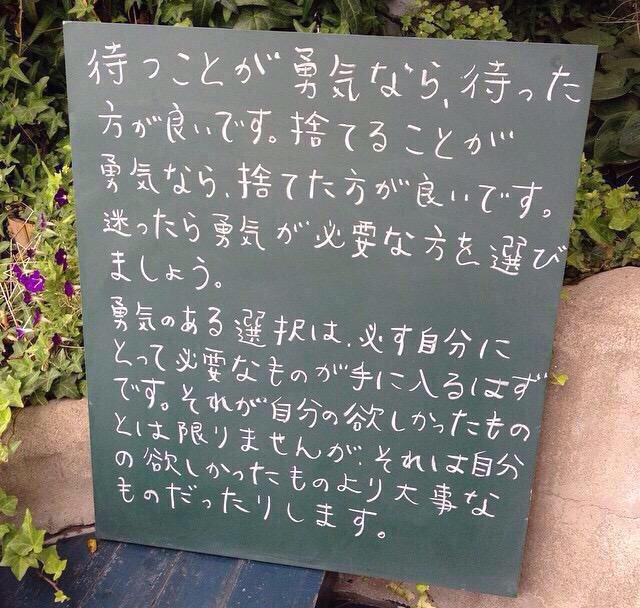 待つことが勇気なら、待った
方が良いです。捨てることが
勇気なら、捨てた方が良いです。
迷ったら勇気が必要な方を選び
ましょう。
勇気のある選択は、必す自分に
とって必要なものが手に入るはず
です。それが自分の欲しかったもの
とは限りませんが、それは自分
の欲しかったものより大事な
ものだったりします。